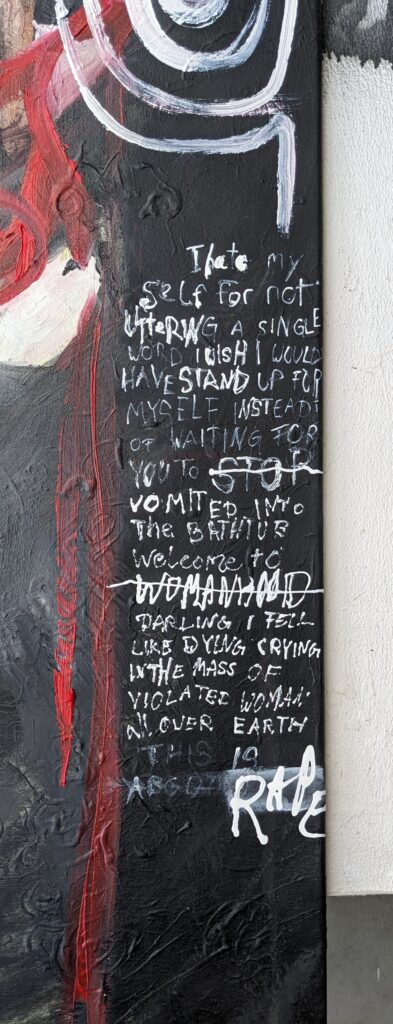 I hate my
self for not
uttering a single
word I wish I would
have stand up for
myself instead
of waiting for
you to stop
vomited into
the bathtub
welcome to
womanhood
darling I feel
like dying crying
in the mass of
violated woman
all over earth
this is
about RAPE